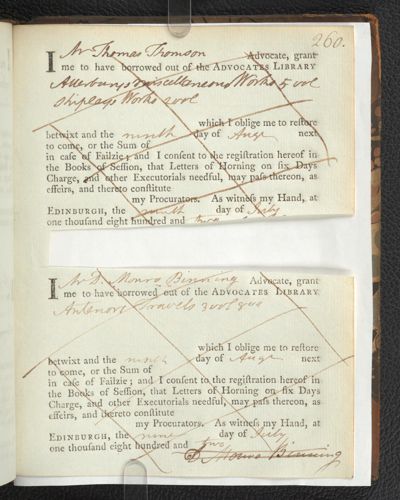 260.
I Mr Thomas Thomson Advocate, grant
me to have borrowed out of the ADVOCATES LIBRARY
Atterburys miscellaneous Works 5 vol
Works 2 vol
which I oblige me to restore
betwixt and the ninth day of Augt next
to come, or the Sum of
in case of Failzie; and I consent to the registration hereof in
the Books of Session, that Letters of Horning on six Days
Charge, and other Executorials needful, may pass thereon, as
effeirs, and thereto constitute
my Procurators. As witness my Hand, at
EDINBURGH, the ninth day of July
one thousand eight hundred and two
I Mr D. Monro Binning Advocate, grant
me to have borrowed out of the ADVOCATES LIBRARY
Antenors Travels 3 vol 8vo
which I oblige me to restore
betwixt and the ninth day of Augt next
to come, or the Sum of
in case of Failzie; and I consent to the registration hereof in
the Books of Session, that Letters of Horning on six Days
Charge, and other Executorials needful, may pass thereon, as
effeirs, and thereto constitute
my Procurators. As witness my Hand, at
EDINBURGH, the nine day of July
one thousand eight hundred and two
D. Monro Binning